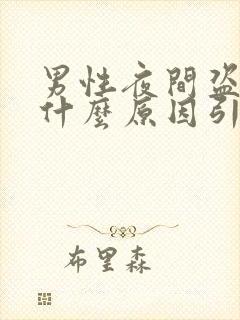 男性夜間盜
什麼原因引
布里森